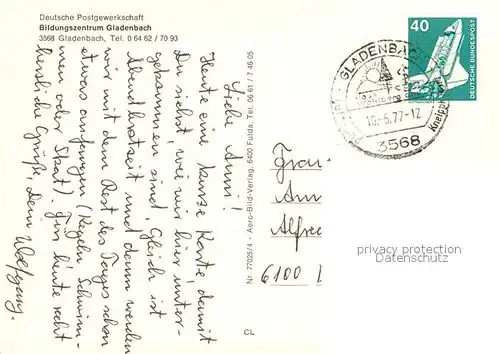 Deutsche Postgewerkschaft
Bildungszentrum Gladenbach
3568 Gladenbach, Tel. 0 64 62 / 70 93
Liebe Anni!
Heute eine kurze Karte, damit
Du siehst, wie wir hier unter-
gekommen sind. Gleich ist
Abendbrotzeit und dann werden
wir mit dem Rest des Tages schon
etwas anfangen (Kegeln, Schwim-
men oder Skat). Für heute recht
herzliche Grüße, Dein Wolfgang.
Nr. 77025/4 - Aero-Bild-Verlag, 6400 Fulda, Tel. 06 61 / 7 46 05
CL
40
DEUTSCHE BUNDESPOST
GLADENBACH
Kneipp
-5.77-12
3568
Frau
Ann
Alfred
6100
privacy protection
Datenschutz